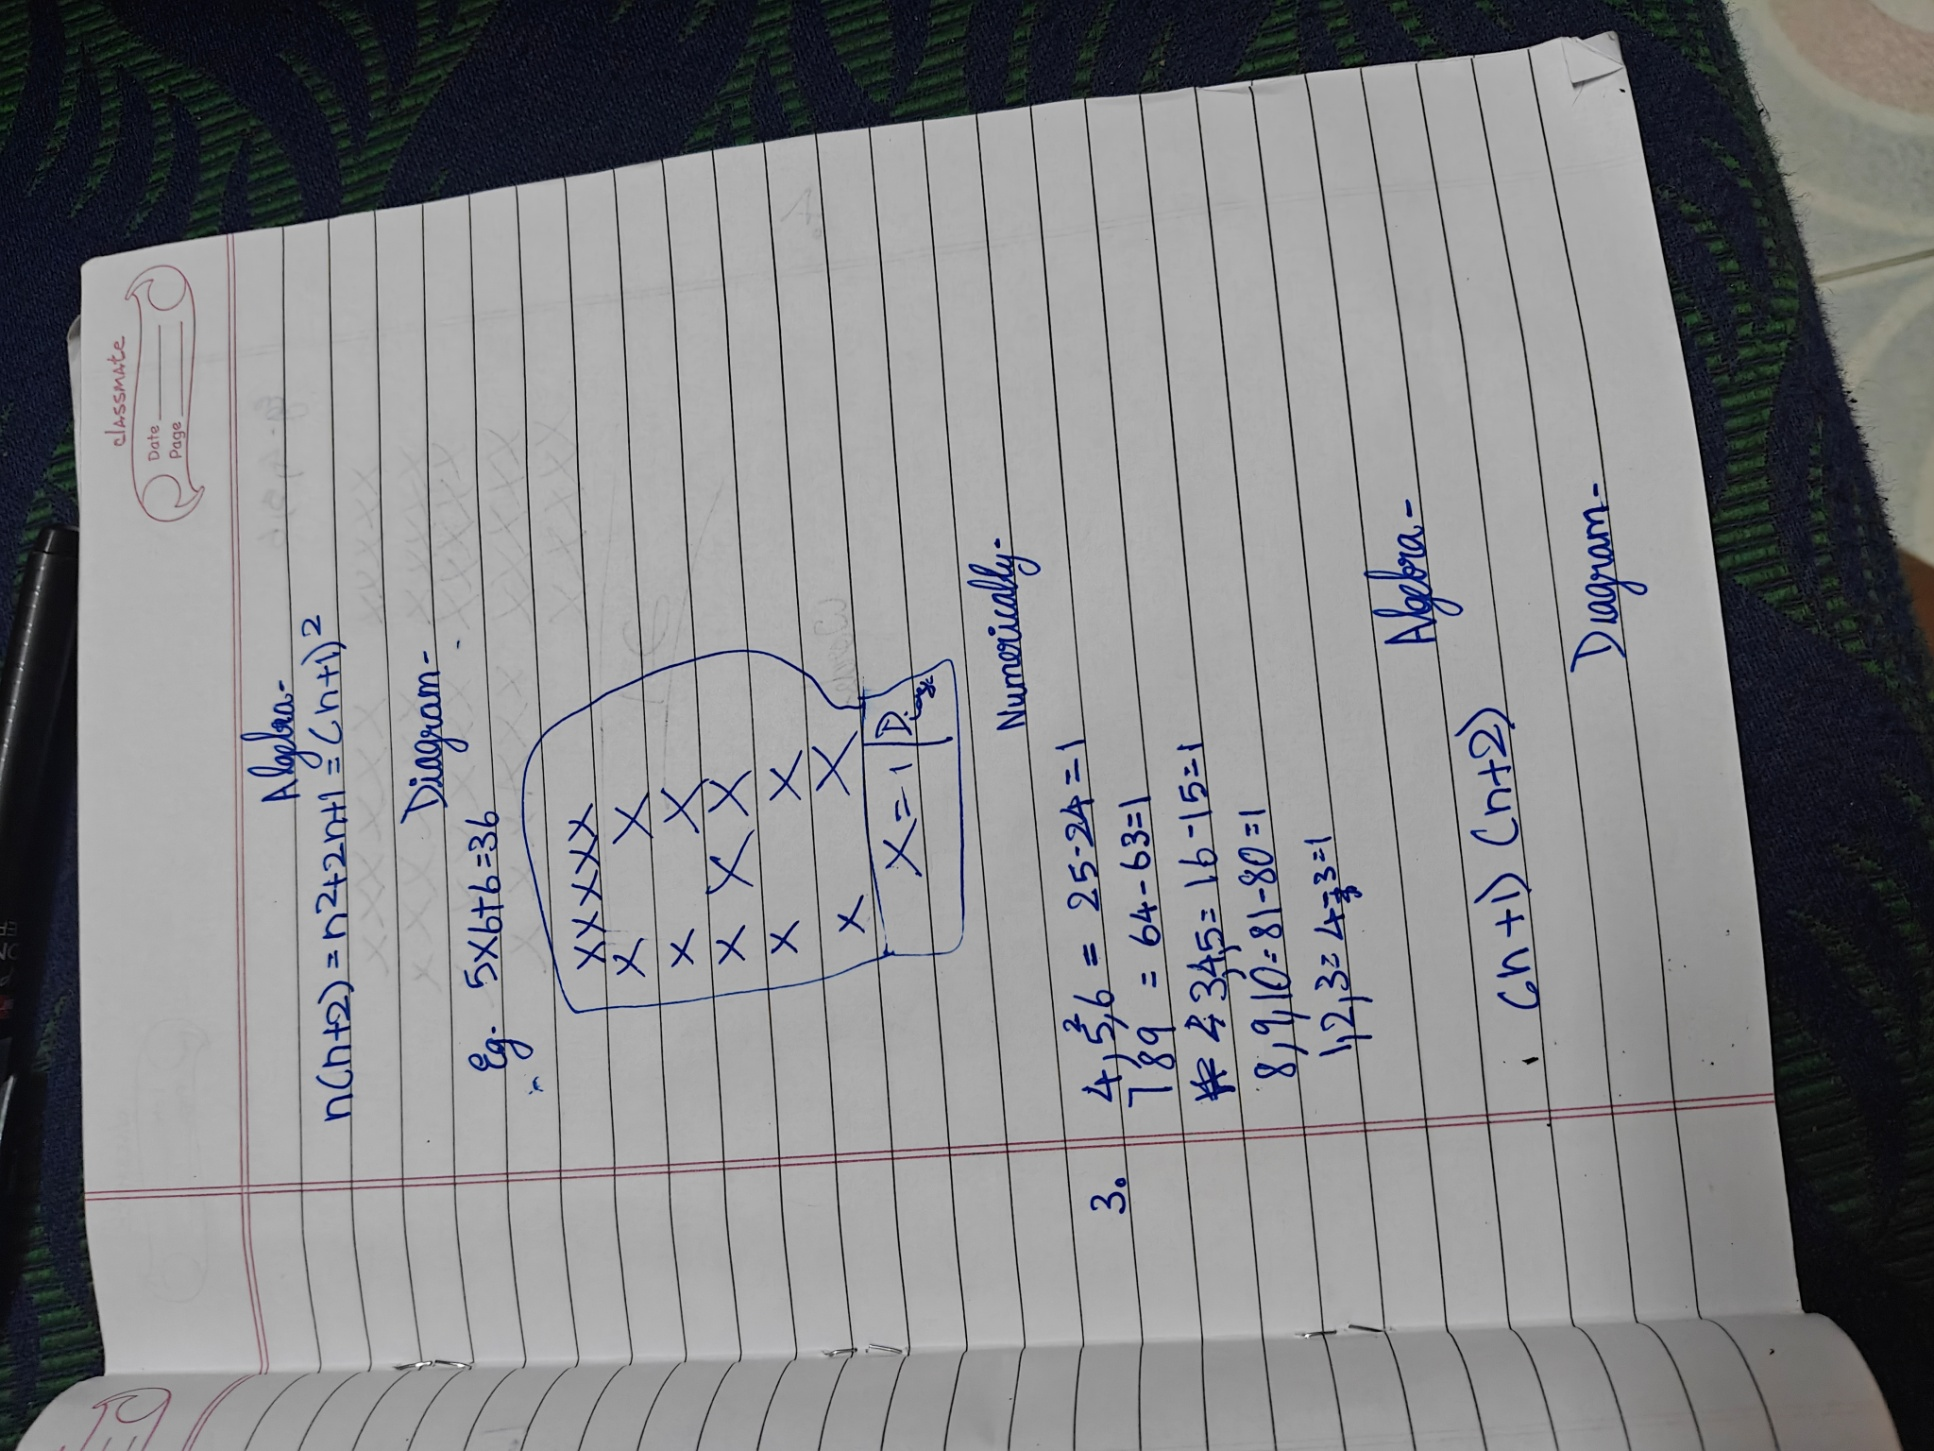 classmate
Date
Page
Algebra-
n(n+2)=n2+2n+1=(n+1)2
Diagram-
Eg. 5x6+6=36
XXXXX
X X
X X
X X X
X X
X X
X=-1
Numerically-
3. 4,5²,6 = 25-24=1
7 89 = 64-63=1
4 3,4,5=16-15=1
8,9,10=81-80=1
1,2,3=4-3=1
Algebra-
(n+1) (n+2)
Diagram-